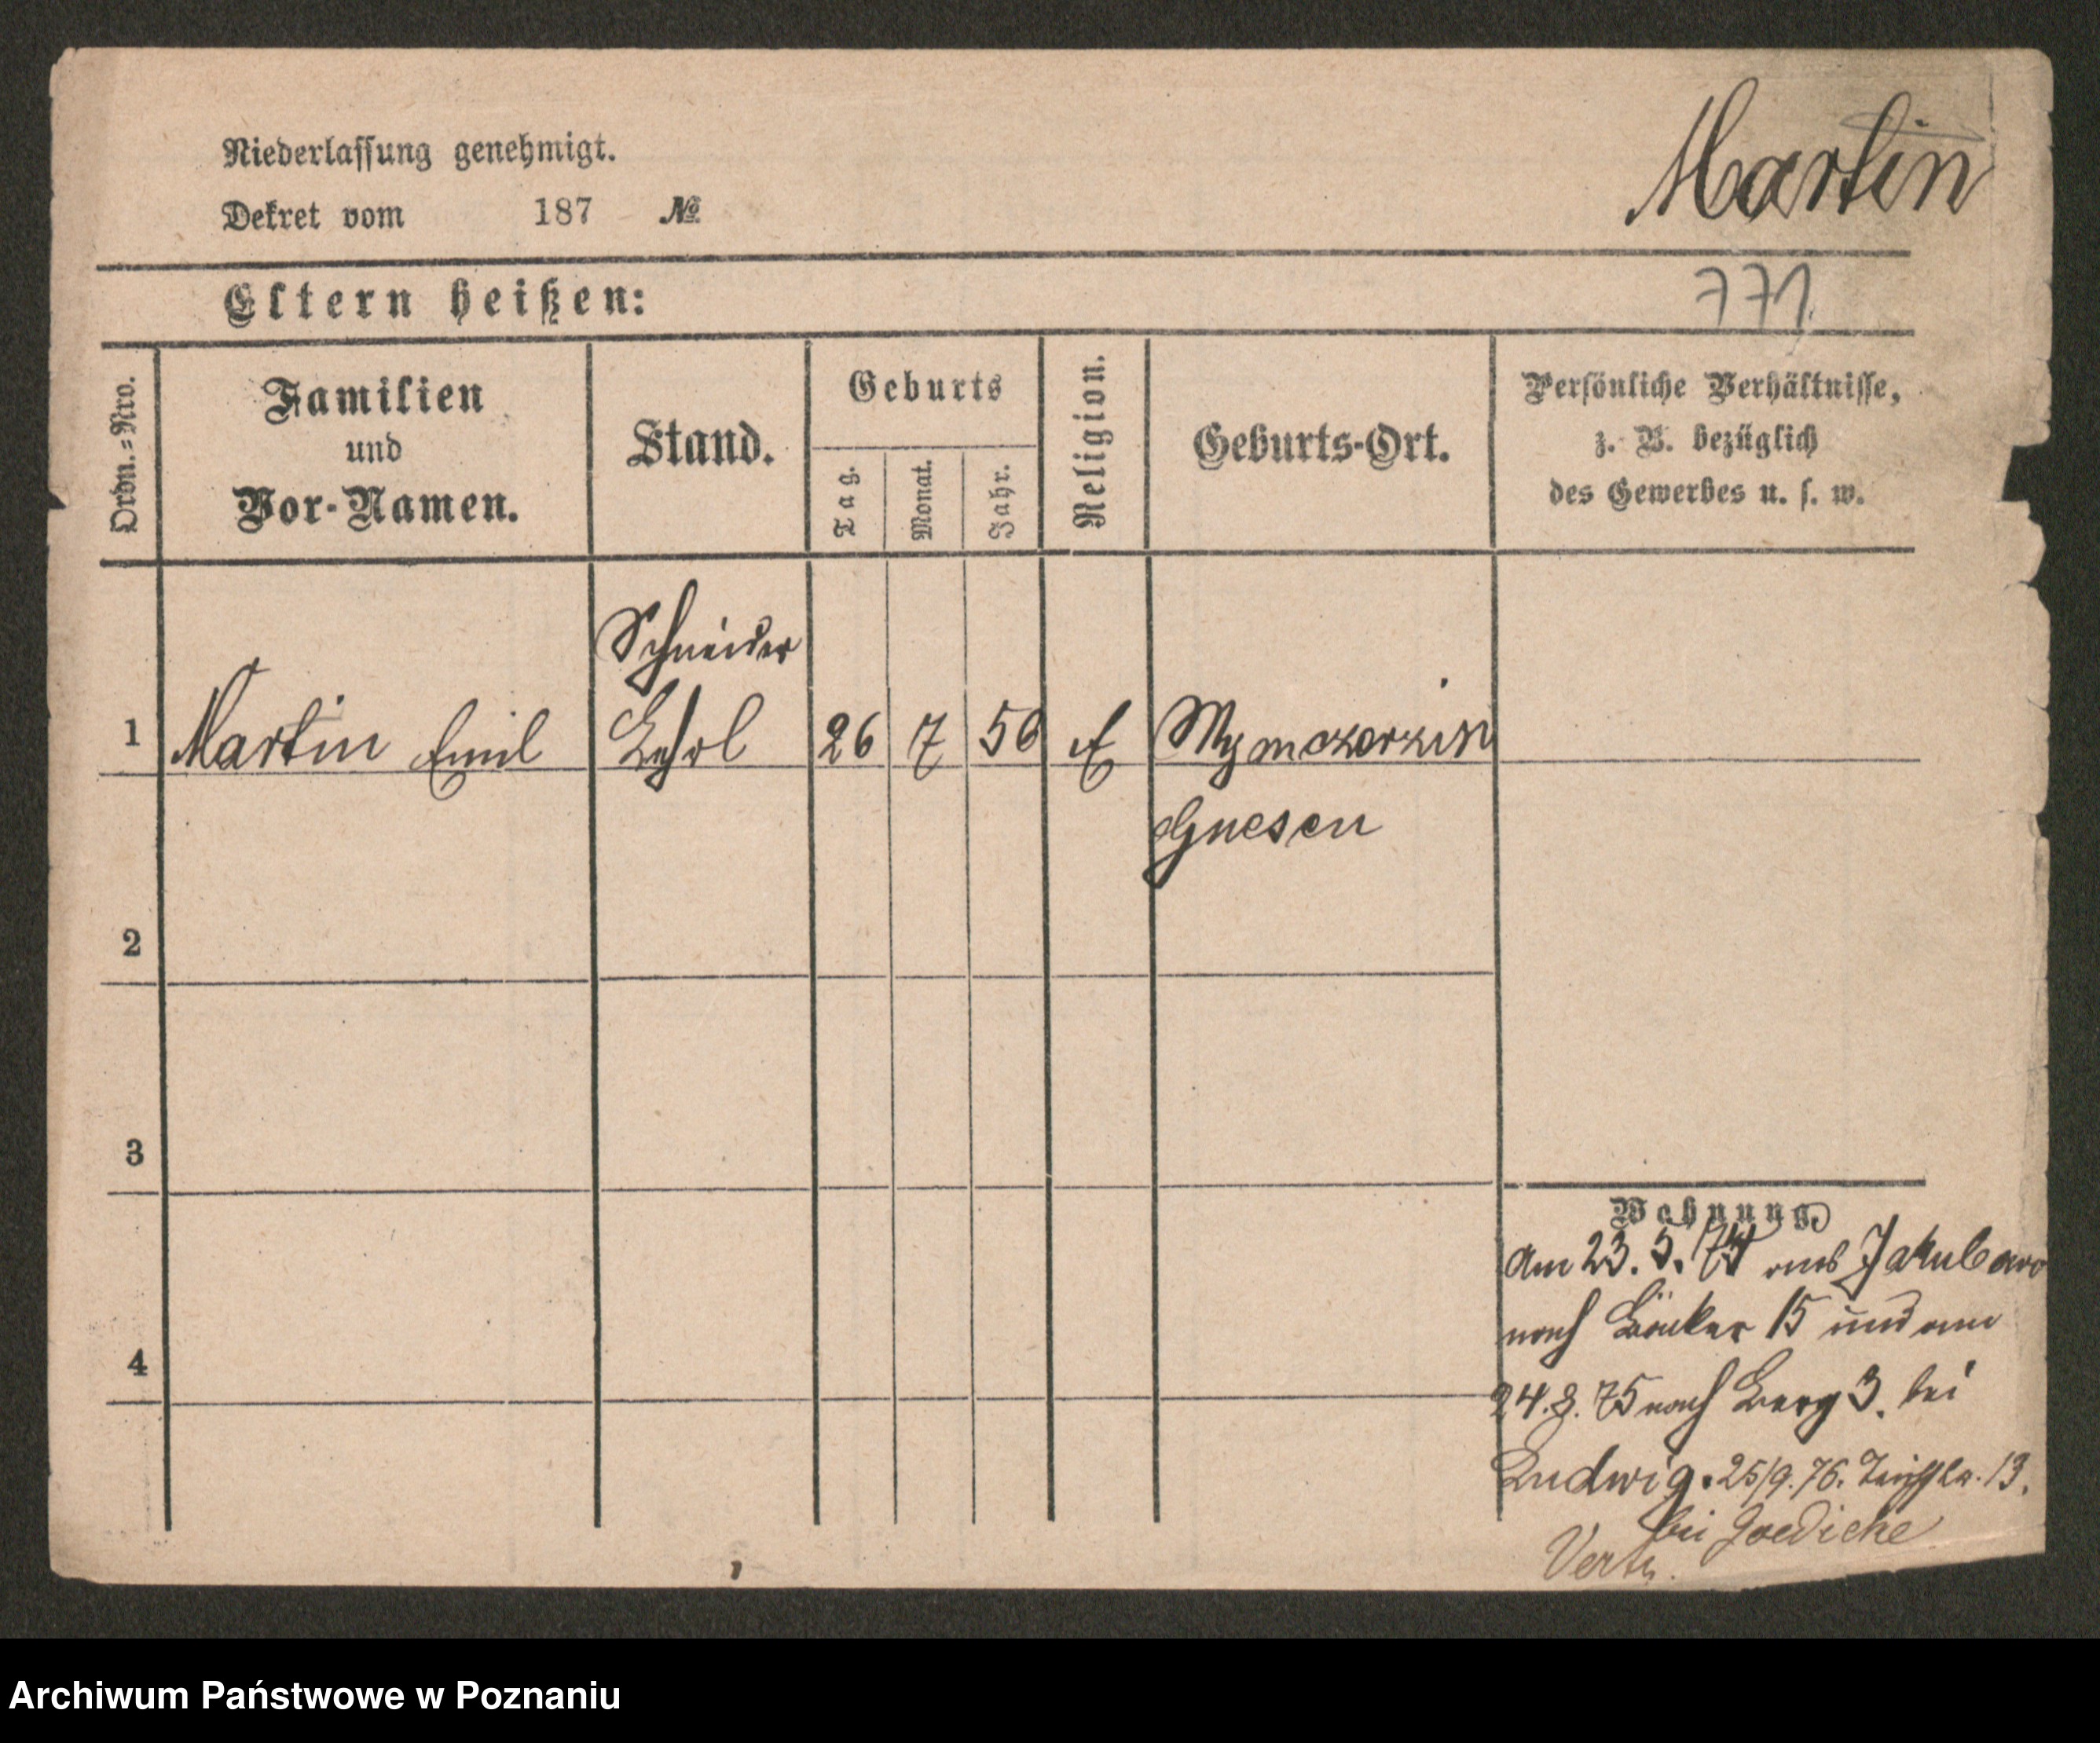 Niederlassung genehmigt.
Dekret vom 187 №
Martin
771.
Eltern heißen:
Ordn.=Nro.
Familien
und
Vor-Namen.
Stand.
Geburts
Tag.
Monat.
Jahr.
Religion.
Geburts-Ort.
Persönliche Verhältnisse,
z. B. bezüglich
des Gewerbes u. s. w.
Schneider
1 Martin Emil Lehrl 26 7 56
Gnesen
2
3
4
Wohnung
Am 23. 5. 75 aus
nach Bäcker 15 und am
24. 8. 75 nach Berg 3. bei
Ludwig. 25/9. 76. 13.
bei Goedicke